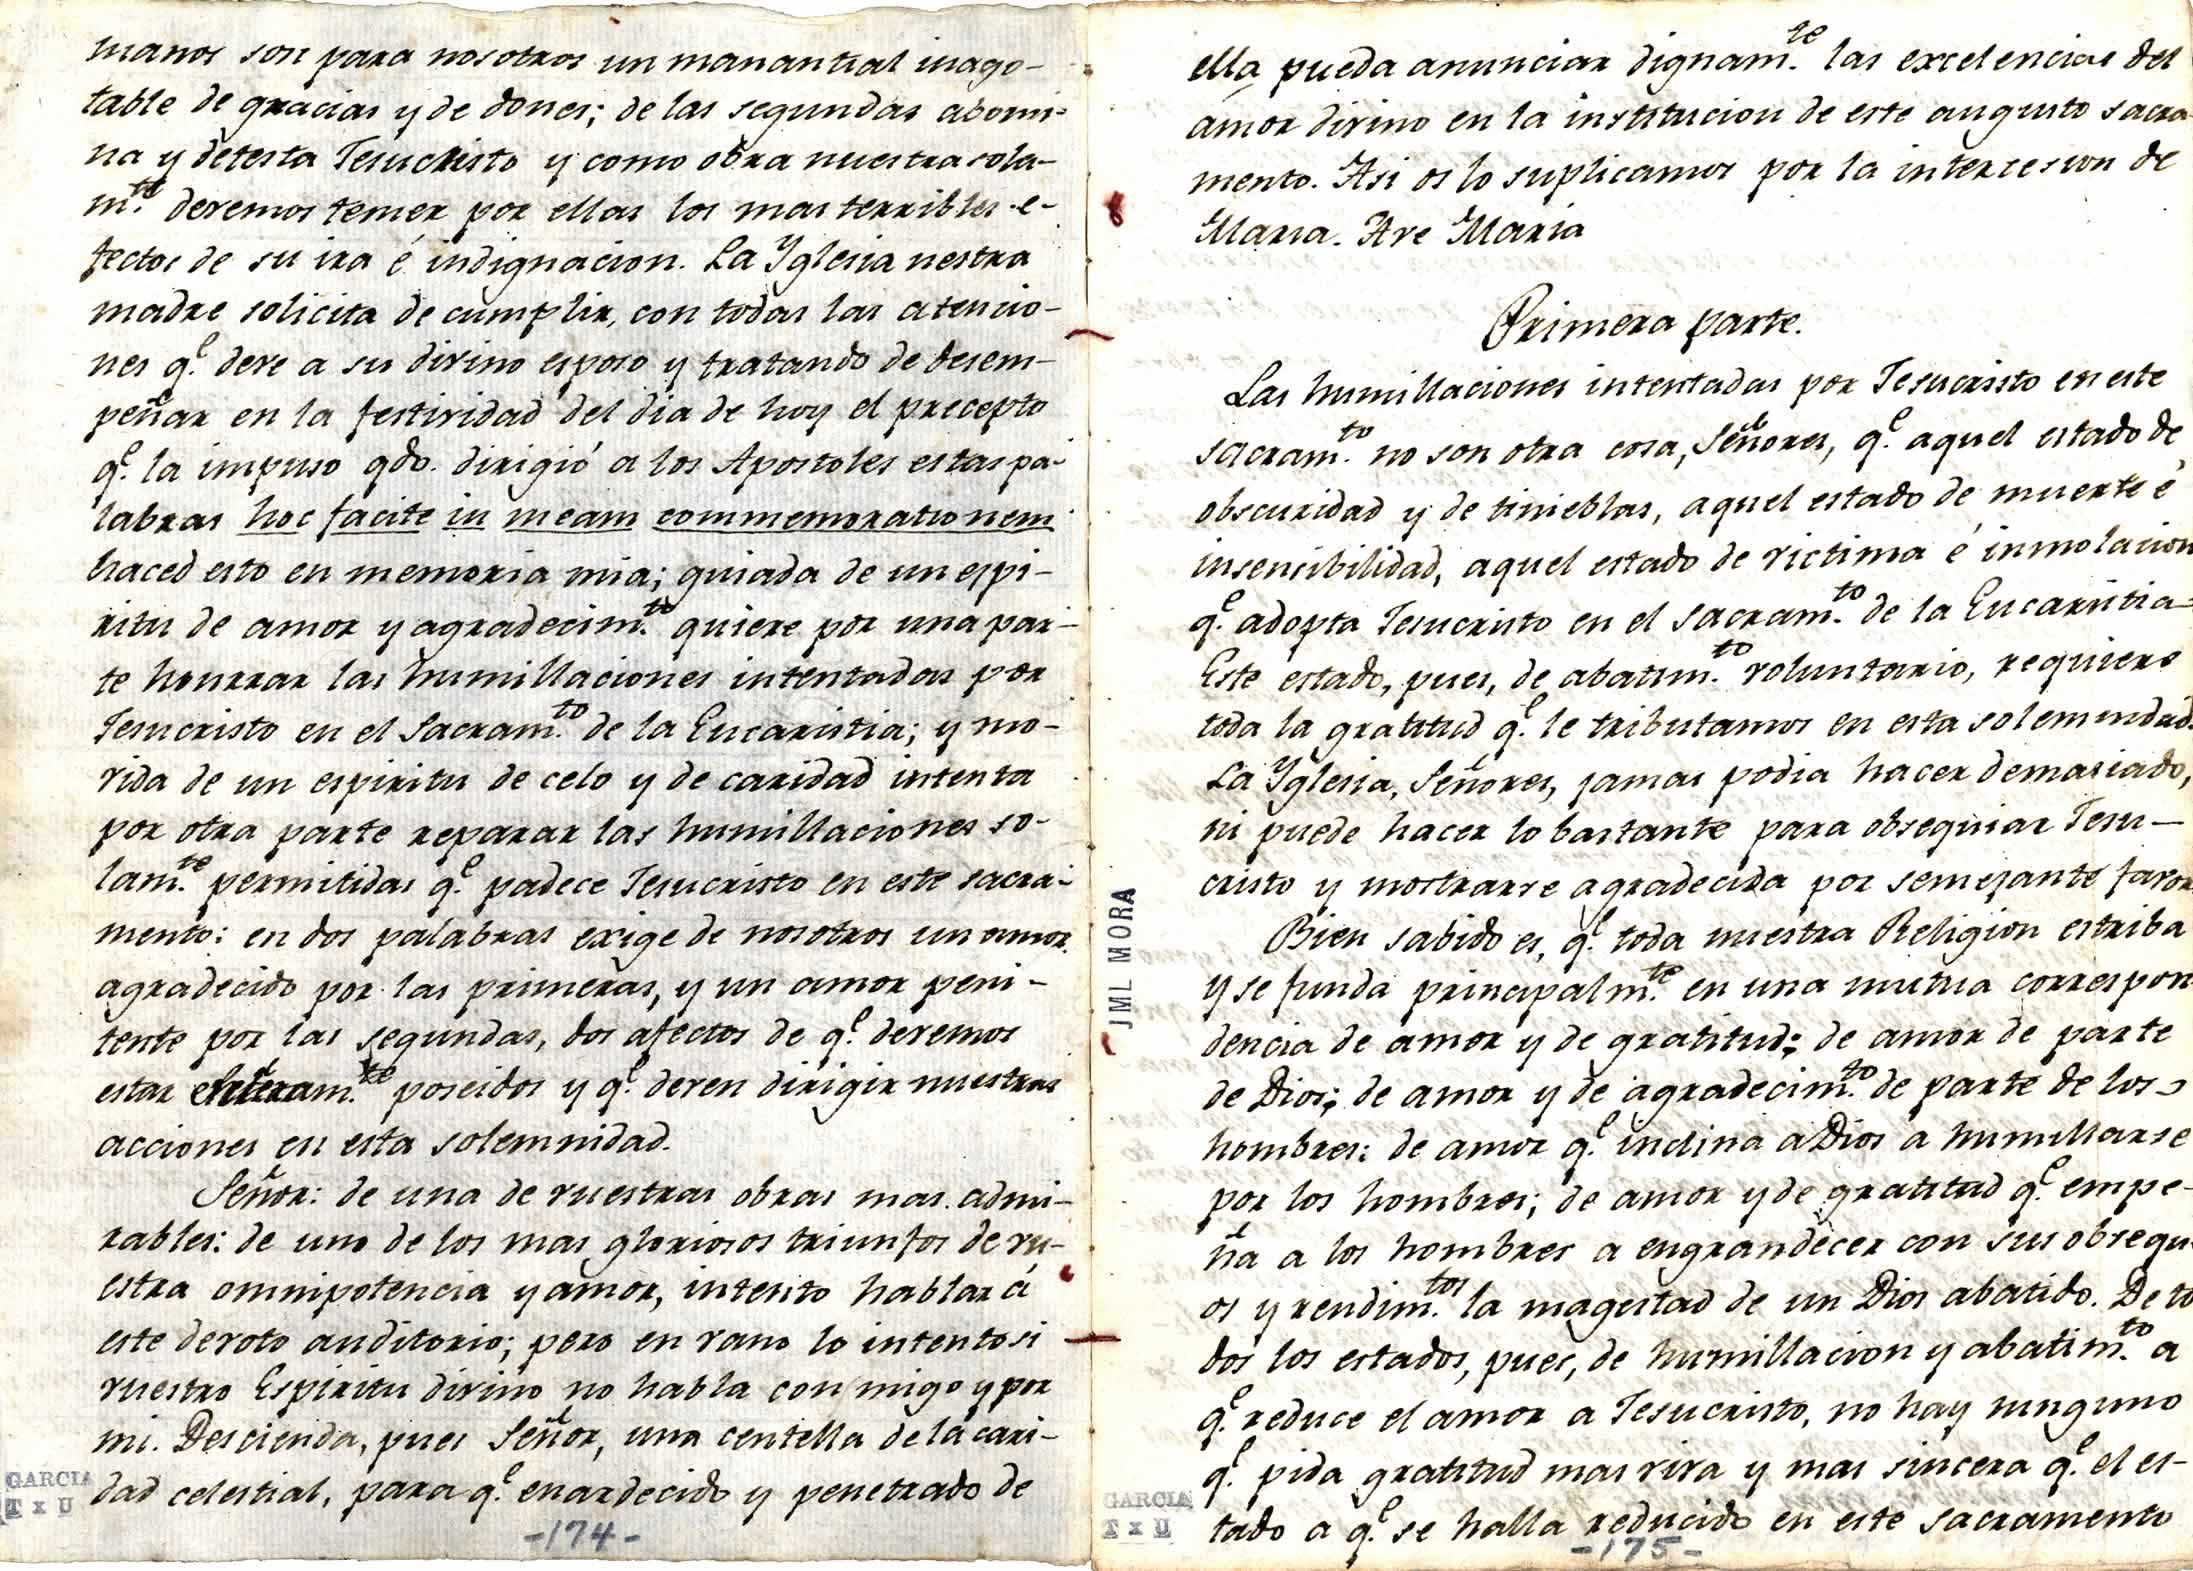 manos son para nosotros un manantial inago-
table de gracias y de dones; de las segundas abomi-
na y detesta Jesucristo y como obra nuestra sola-
m.te devemos temer por ellas los mas terribles e-
fectos de su ira é indignacion. La Yglesia nestra
madre solicita de cumplir, con todas las atencio-
nes q.e deve a su divino esposo y tratando de desem-
peñar en la festividad del dia de hoy el precepto
q.e la impuso qdo. dirigió a los Apostoles estas pa-
labras hoc facite in meam commemorationem
haced esto en memoria mia; guiada de un espi-
ritu de amor y agradecim.to quiere por una par-
te honrrar las humillaciones intentadas por
Jesucristo en el Sacram.to de la Eucaristia; y mo-
vida de un espiritu de celo y de caridad intenta
por otra parte reparar las humillaciones so-
lam.te permitidas q.e padece Jesucristo en este sacra-
mento: en dos palabras exige de nosotros un amor
agradecido por las primeras, y un amor peni-
tente por las segundas, dos afectos de q.e devemos
estar enteram.te poseidos y q.e deven dirigir nuestras
acciones en esta solemnidad.
Señor: de una de vuestras obras mas admi-
rables: de uno de los mas gloriosos triunfos de vu-
estra omnipotencia y amor, intento hablar á
este devoto auditorio; pero en vano lo intento si
vuestro Espiritu divino no habla conmigo y por
mi. Descienda, pues Señor, una centella de la cari-
dad celestial, para q.e enardecido y penetrado de
GARCIA
T x U
-174-
ella pueda anunciar dignam.te las excelencias del
amor divino en la institucion de este augusto sacra-
mento. Asi os lo suplicamos por la intercesion de
Maria. Ave Maria
Primera parte.
Las humillaciones intentadas por Jesucristo en este
sacram.to no son otra cosa, Señores, q.e aquel estado de
obscuridad y de tinieblas, aquel estado de muerte é
insensibilidad, aquel estado de victima é inmolacion
q.e adopta Jesucristo en el sacram.to de la Eucaristia=
Este estado, pues, de abatim.to voluntario, requiere
toda la gratitud q.e le tributamos en esta solemnidad.
La Yglesia, Señores, jamas podia hacer demasiado,
ni puede hacer lo bastante para obsequiar Jesu-
cristo y mostrarse agradecida por semejante favor
Bien sabido es, q.e toda nuestra Religion estriba
y se funda principalm.te en una mutua correspon-
dencia de amor y de gratitud; de amor de parte
de Dios; de amor y de agradecim.to de parte de los
hombres: de amor q.e inclina a Dios a humillarse
por los hombres; de amor y de gratitud q.e empe-
ña a los hombres a engrandecer con sus obsequi-
os y rendim.tos la magestad de un Dios abatido. De to
dos los estados, pues, de humillacion y abatim.to a
q.e reduce el amor a Jesucristo, no hay ninguno
q.e pida gratitud mas viva y mas sincera q.e el es-
tado a q.e se halla reducido en este sacramento
JML MORA
GARCIA
T x U
-175-